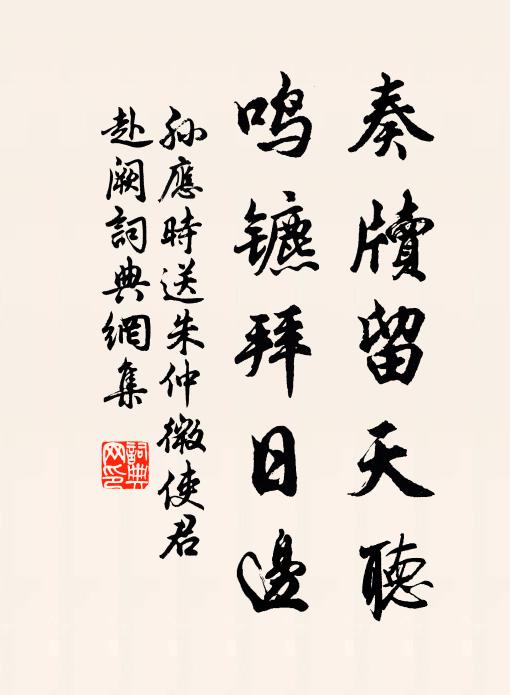 奏牘留天聽
鸣镳拜日邊
孙應時送朱仲微使君
赴阙詞典網集
詞典
网印